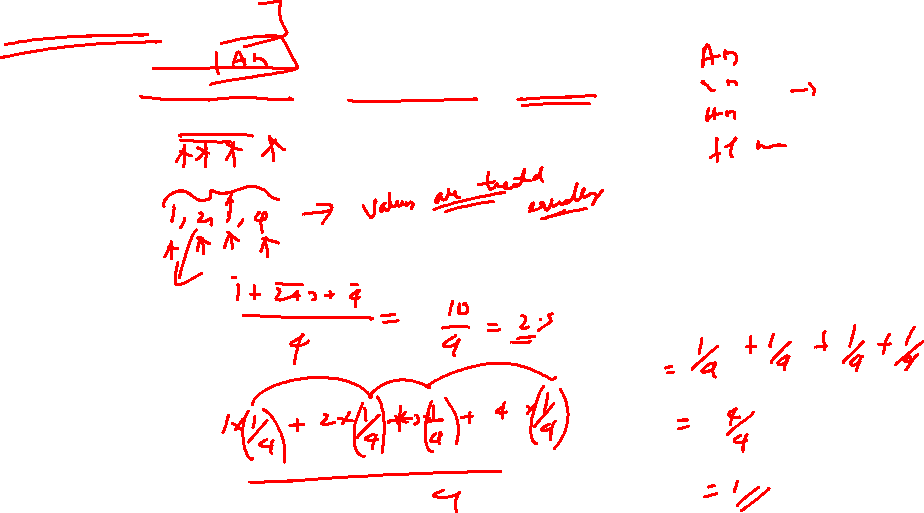 An
An
An
1, 2, 3, 4 → values are treated equally
1 + 2 + 3 + 4 / 4 = 10/4 = 2.5
1×(1/4) + 2×(1/4) + 3×(1/4) + 4×(1/4) / 4
= 1/4 + 1/4 + 1/4 + 1/4
= 4/4
= 1